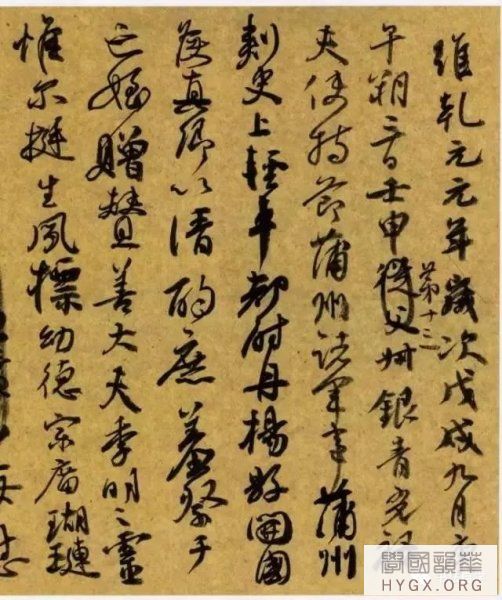 維乾元元年歲次戊戌九月庚
午朔三日壬申從父第十三叔銀青光祿
夫使持節蒲州諸軍事蒲州
刺史上輕車都尉丹楊縣開國
侯真卿以清酌庶羞祭于
亡姪贈贊善大夫季明之靈
惟爾挺生夙標幼德宗廟瑚璉
每慰
學國韻華
HYGX.ORG